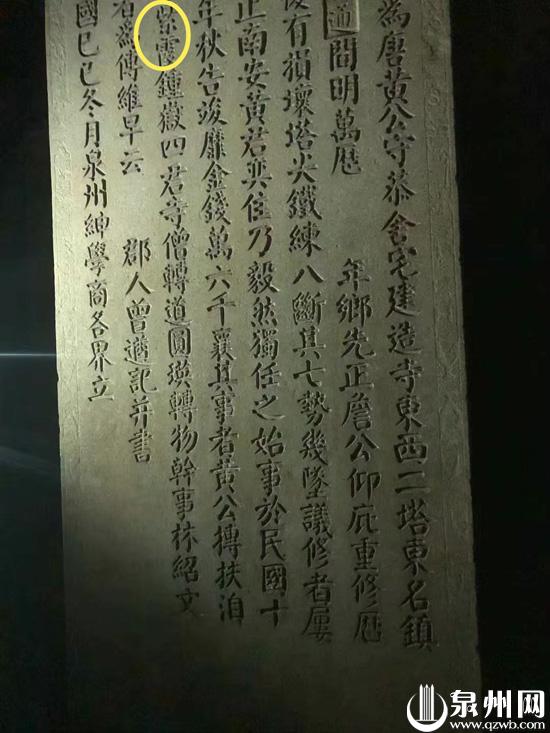 為唐黃公守恭舍宅建造寺東西二塔東名鎮
間明萬曆　年鄉先正詹公仰庇重修曆
有損壞塔尖鐵練八斷其七勢幾墜議修者屢
正南安黃君奕住乃毅然獨任之始事於民國十
年秋告竣靡金錢萬六千襄其事者黃公摶扶洎
紫霞鍾嶽四君寺僧轉道圓瑛轉物幹事林紹文
傅維早云　郡人曾遒記并書
國己巳冬月泉州紳學商各界立
泉州网
www.qzwb.com